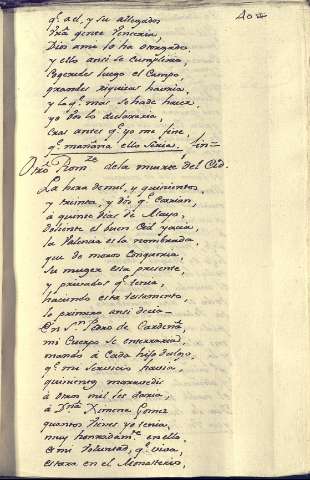 40
q.e el, y su allegados
gente Pencera,
Dios amo lo ha otorgado,
y ello ansi se cumpliria,
Cogeredes luego el Campo,
grandes riquezas havria,
y lo q.e mas se hade hacer,
yo vos lo declararia,
Cras antes q.e yo me fine,
q.e mañana ello seria, fin=
Otro Rom.ze de la muerte del Cid.
La hera de mil, y quinientos,
y treinta, y dos q.e corrian,
á quince dias de Mayo,
doliente el buen Cid yacia,
la Valencia es la nombrada,
que de moros Conqueria,
Su muger esta presente,
y privados q.e tenia,
haciendo esta testamento,
lo primero ansi decia—
En S.n Pedro de Cardeña,
mi Cuerpo se enterraria,
mando á Cada hijo dalgo,
q.e me servicio havia,
quinientos maravedis
á otros mil les daria,
á Dña Ximena Gomez
quantos vienes yo tenia,
muy honradam.te en ello
es mi voluntad, q.e viva,
estara en el Monasterio,